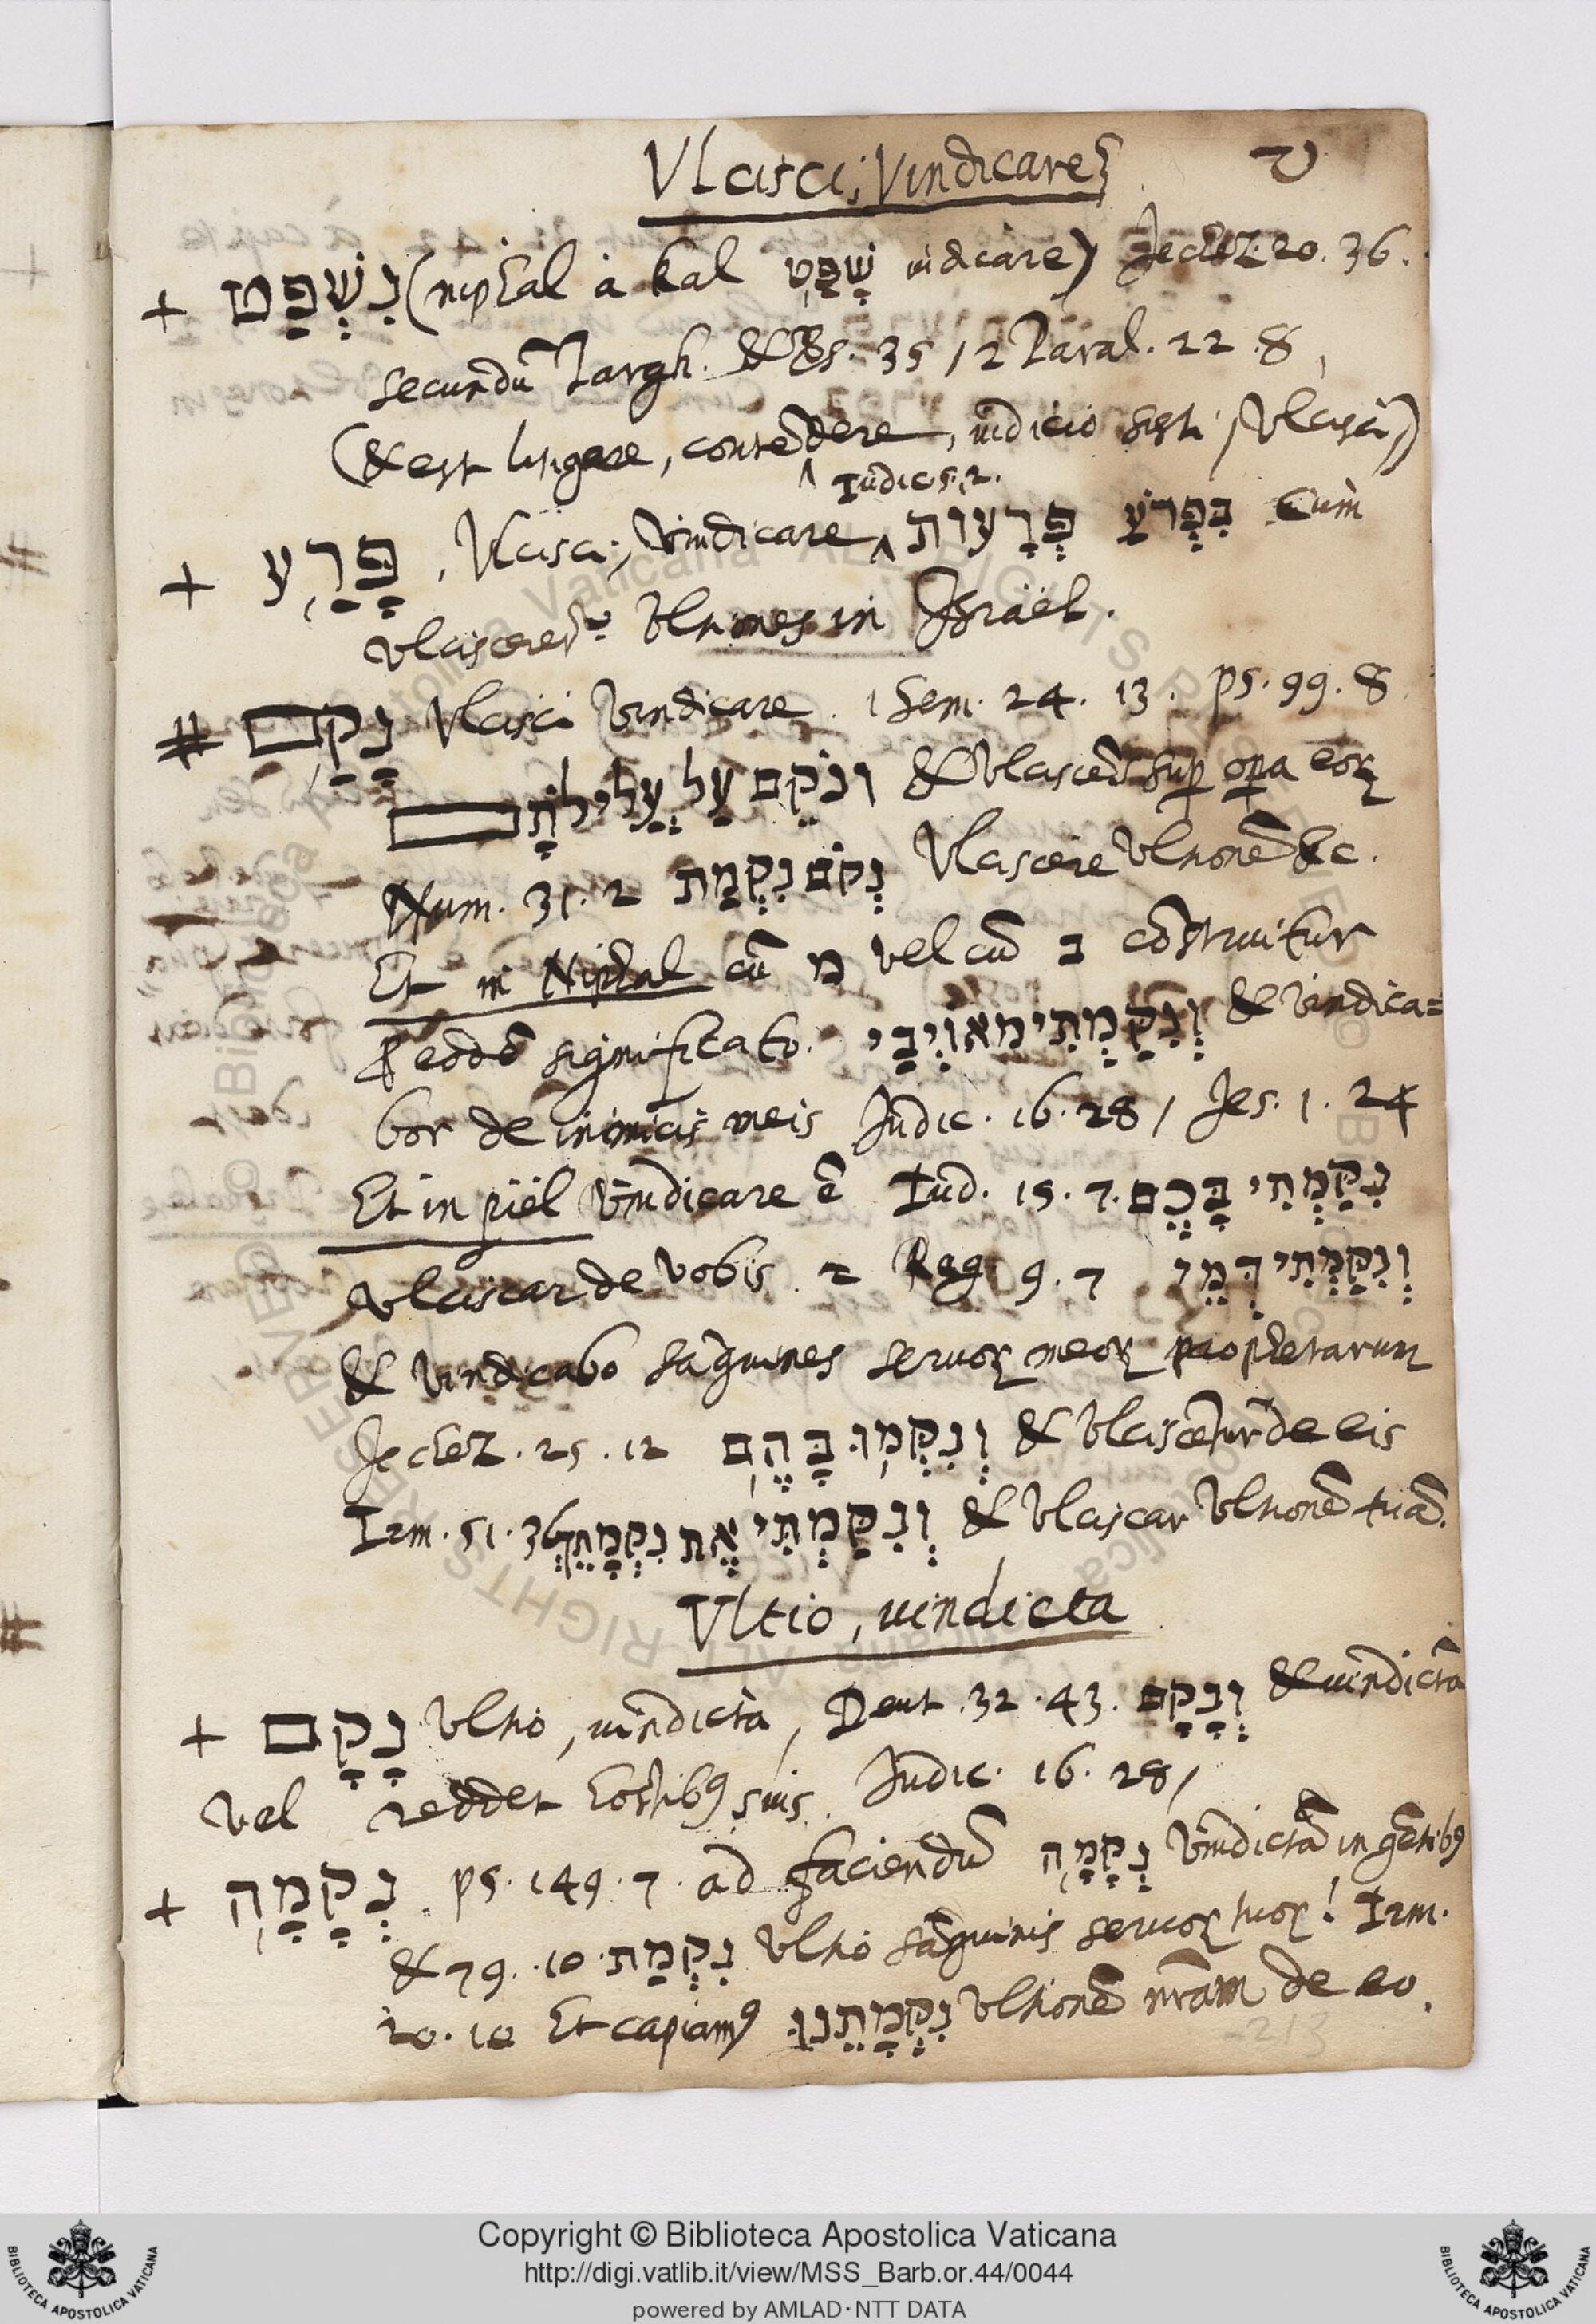 Vlcisci, Vindicare
ט
+ נִשְׁפַּט (niphal à kal שָׁפַט iudicare) Jechez. 20. 36.
secundũ Targh. & Ps. 35, 2 Paral. 22. 8,
(& est litigare, contendere, iudicio sisti, Vlcisci)
Iudic. 5. 2.
+ פָּרַע, Vlcisci, Vindicare בִּפְרֹעַ פְּרָעוֹת Cum
vlciscere͂ vltiones in Jsrael.
# נָקַם Vlcisci Vindicare. 1 Sem. 24. 13. ps. 99. 8
וְנֹקֵם עַל עֲלִילֹתָם & Vlciscens sup opa eoꝝ
Num. 31. 2 נְקֹם נִקְמַת Vlciscere Vltionẽ &c.
Et in Niphal cũ מ vel cũ ב cõstruitur
eodẽ significato. וְנִקַּמְתִּי מאוֹיְבַי & vindica=
bor de inimicis meis Judic. 16. 28, Jes. 1. 24
Et in piel Vindicare ẽ Iud. 15. 7. נִקַּמְתִּי בָּכֶם
vlciscar de vobis. 2 Reg 9. 7 וְנִקַּמְתִּי דְּמֵי
& vindicabo sãguines seruoꝝ meoꝝ prophetarum
Jechez. 25. 12 וְנִקְּמוּ בָּהֶם & vlciscẽtur de eis
Irm. 51. 36 וְנִקַּמְתִּי אֶת נִקְמָתֵךְ & vlciscar vltionẽ tuã.
Vltio, vindicta
+ נָקָם vltio, vindicta, Deut. 32. 43. וְנָקָם & vindictã
vel reddet hostibꝰ suis. Judic. 16. 28,
+ נְקָמָה. ps. 149. 7. ad faciendũ נְקָמָה Vindictã in gẽtibꝰ
& 79. 10. נִקְמַת vltio sãguinis seruoꝝ tuoꝝ! Irm.
20. 10 Et capiamꝰ נִקְמָתֵנוּ vltionẽ nr̃am de eo.
213
Copyright © Biblioteca Apostolica Vaticana
http://digi.vatlib.it/view/MSS_Barb.or.44/0044
powered by AMLAD·NTT DATA
BIBLIOTECA APOSTOLICA VATICANA
BIBLIOTECA APOSTOLICA VATICANA